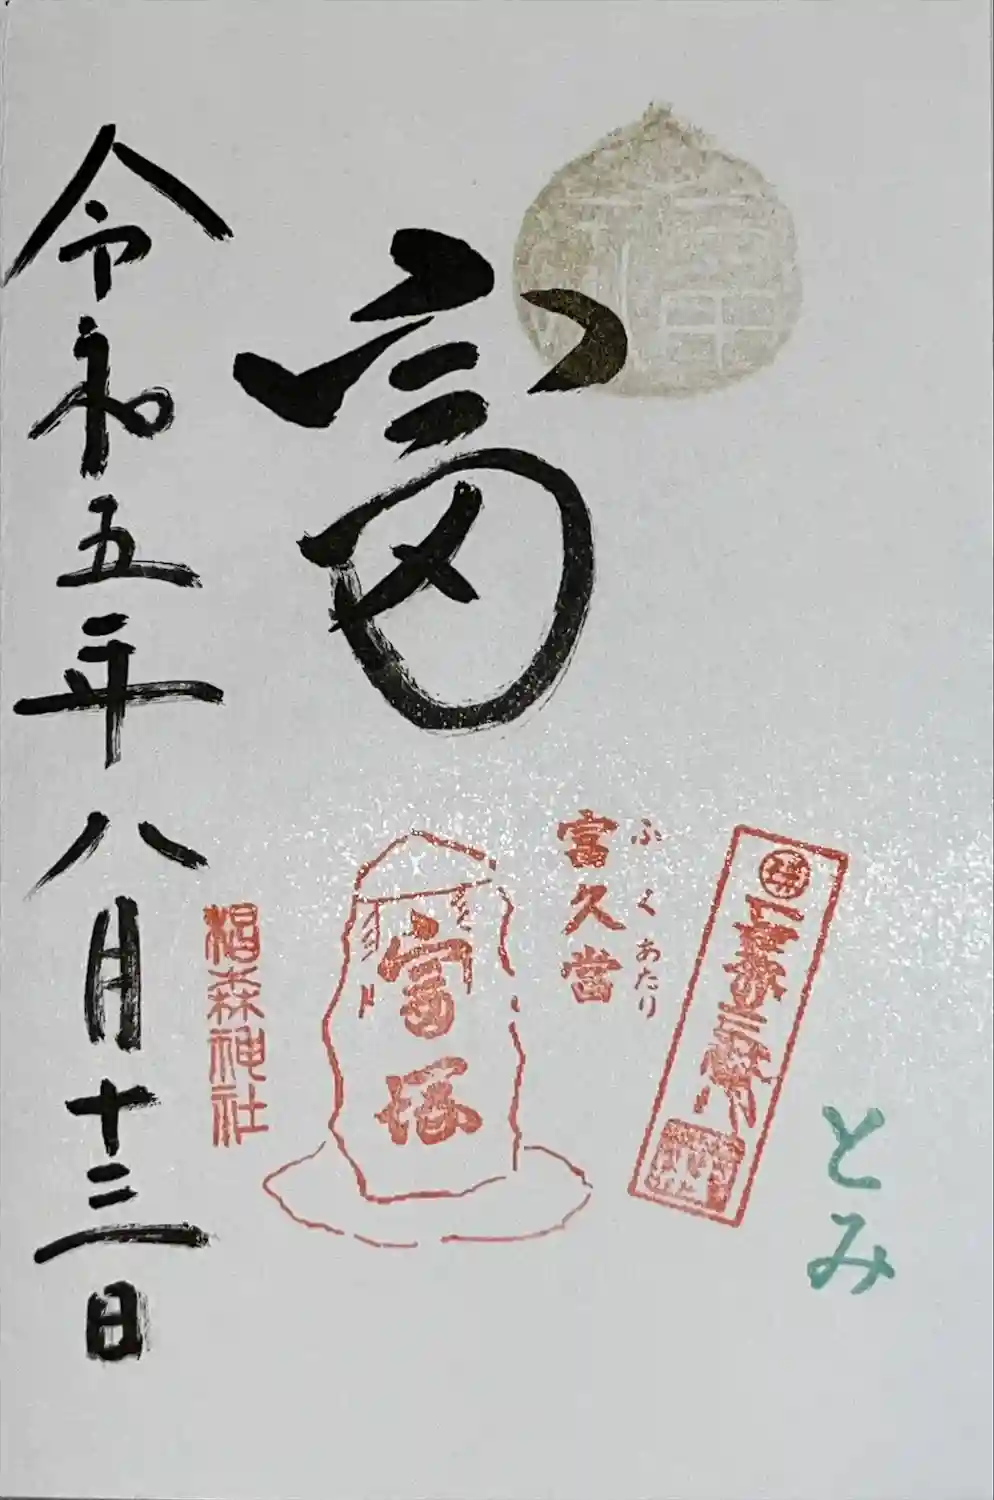 とみ
ふくあたり
富久當
富
富塚
椙森神社
令和五年八月十三日